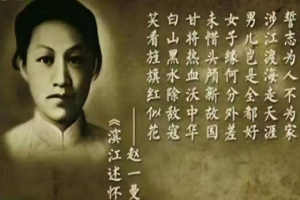 誓志为人不为家
涉江渡海走天涯
男儿岂是全都好
女子缘何分外差
未惜头颅新故国
甘将热血沃中华
白山黑水除敌寇
笑看旌旗红似花
——赵一曼
《滨江述怀》